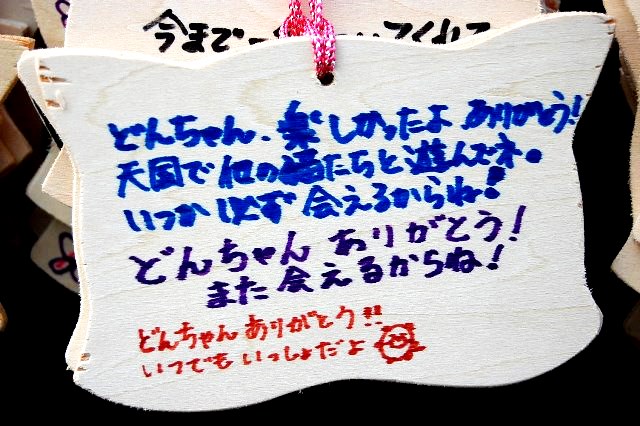 今まで
どんちゃん、楽しかったよ ありがとう!
天国で他の猫たちと遊んでネ。
いつか必ず会えるからね!
どんちゃん ありがとう!
また会えるからね!
どんちゃんありがとう!!
いつでもいっしょだよ